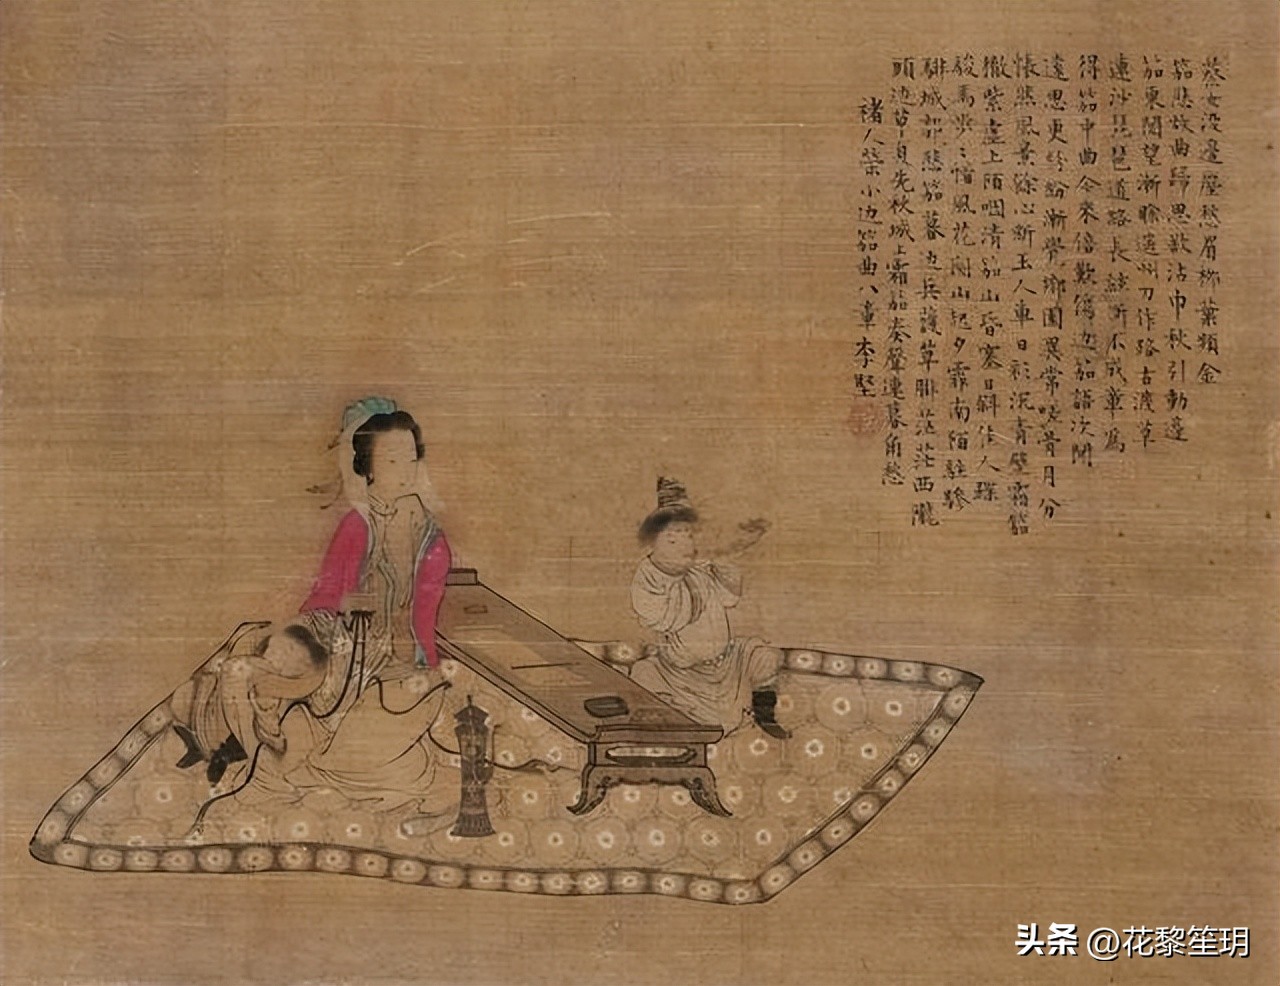 蔡女没邊塵愁眉柳葉顰金
笳悲故曲歸思欲沾巾秋引動邊
笳東關望漸賒遥州刀作路古渡草
連沙琵琶道路長絃斷不成章爲
得笳中曲今來倍歎傷邊笳譜次聞
遠思更紛紛漸覺鄉園異常嗟骨月分
悵然風景除心斷玉人車日彩沉青壁霜笳
徹紫虛上陌咽清笳山昏塞日斜作人
駿馬惜風花關山起夕霏南陌駐驂
騑城郭悲笳暮边兵護草腓茫茫西隴
頭边草先秋城上霜笳奏聲連暮角愁
褚人小边笳曲八章李堅
头条 @花黎笙玥